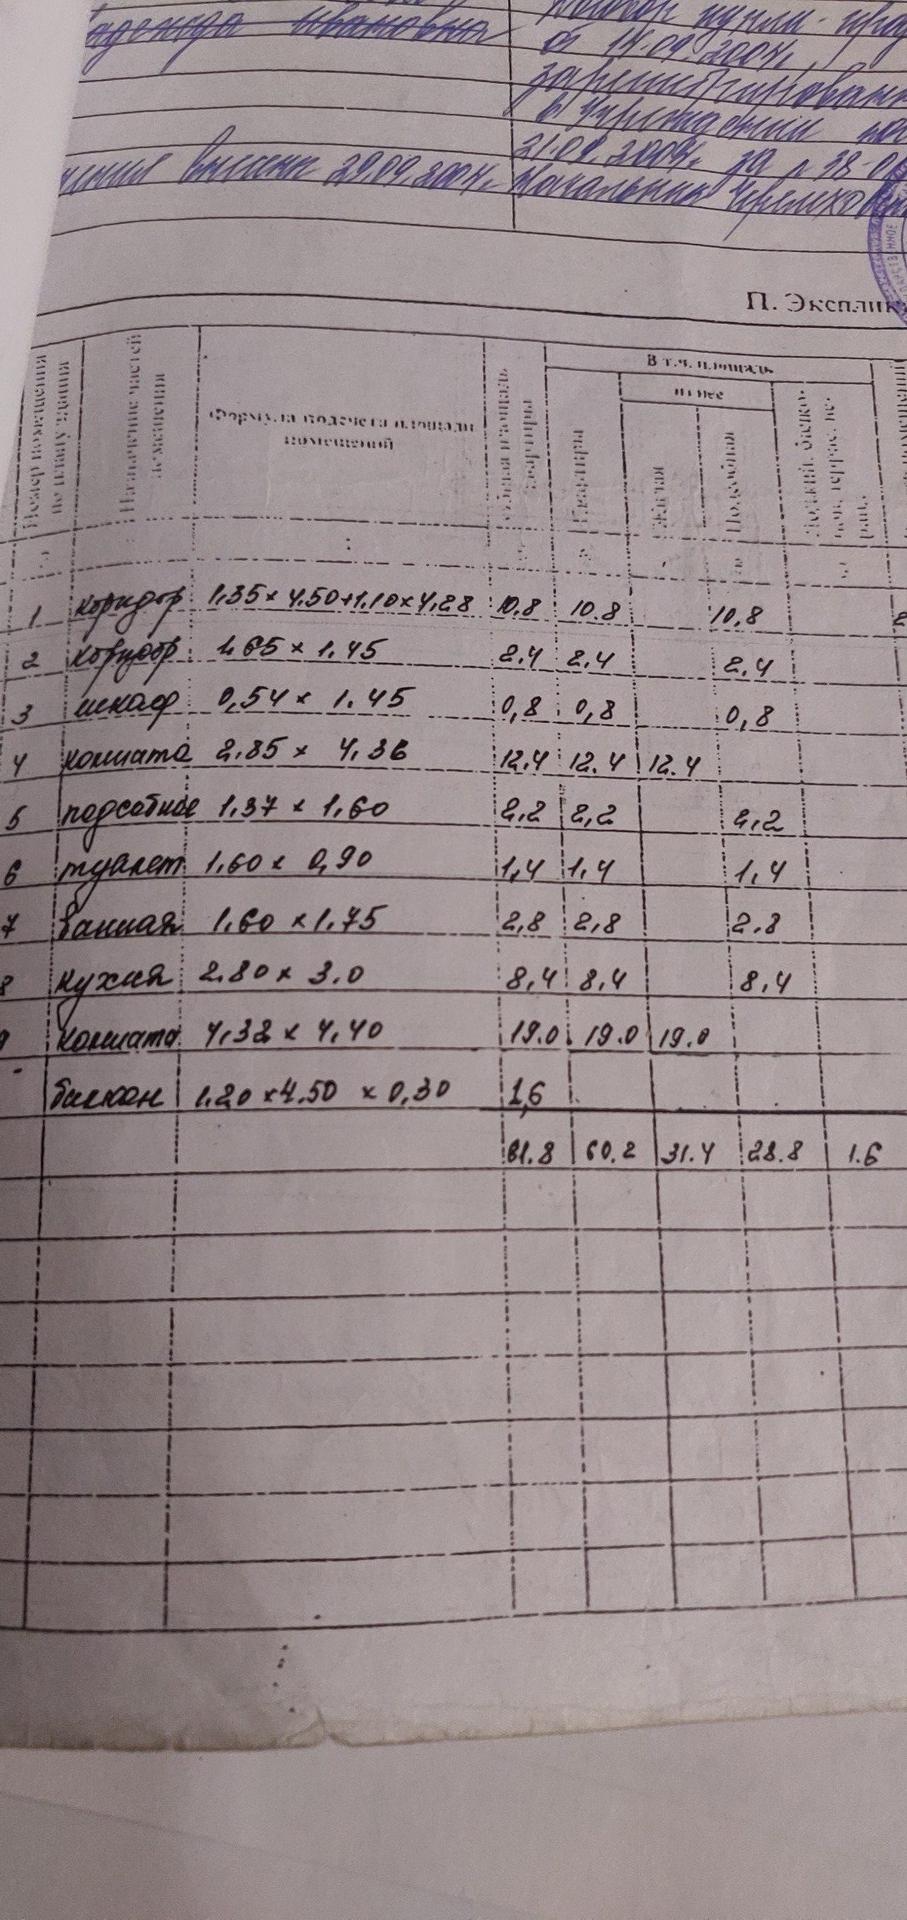 Надежда Ивановна
купли-прод
от 14.09.2004г.
зарегистрирован
в Учреждении
21.09.2004г. за
внесены 29.09.2004г. Начальник Черемхов
П. Эксплик
В т.ч. площадь
из нее
Номер помещения по плану здания
Назначение частей помещения
Формула подсчета площади
помещений
Общая площадь квартиры
Квартиры
Жилая
Подсобная
1 коридор 1,35 × 4.50+1.10 × 4,28 10,8 10.8 10,8
2 коридор 1.65 × 1.45 2,4 2,4 2,4
3 шкаф 0,54 × 1.45 0,8 0,8 0,8
4 комната 2,85 × 4,36 12,4 12.4 12.4
5 подсобное 1,37 × 1,60 2,2 2,2 2,2
6 туалет 1,60 × 0,90 1,4 1.4 1,4
7 ванная 1.60 × 1.75 2,8 2,8 2.8
8 кухня 2.80 × 3.0 8,4 8,4 8,4
9 комната 4,32 × 4,40 19.0 19.0 19.0
балкон 1.20 × 4.50 × 0,30 1,6
61.8 60.2 31.4 28.8 1.6